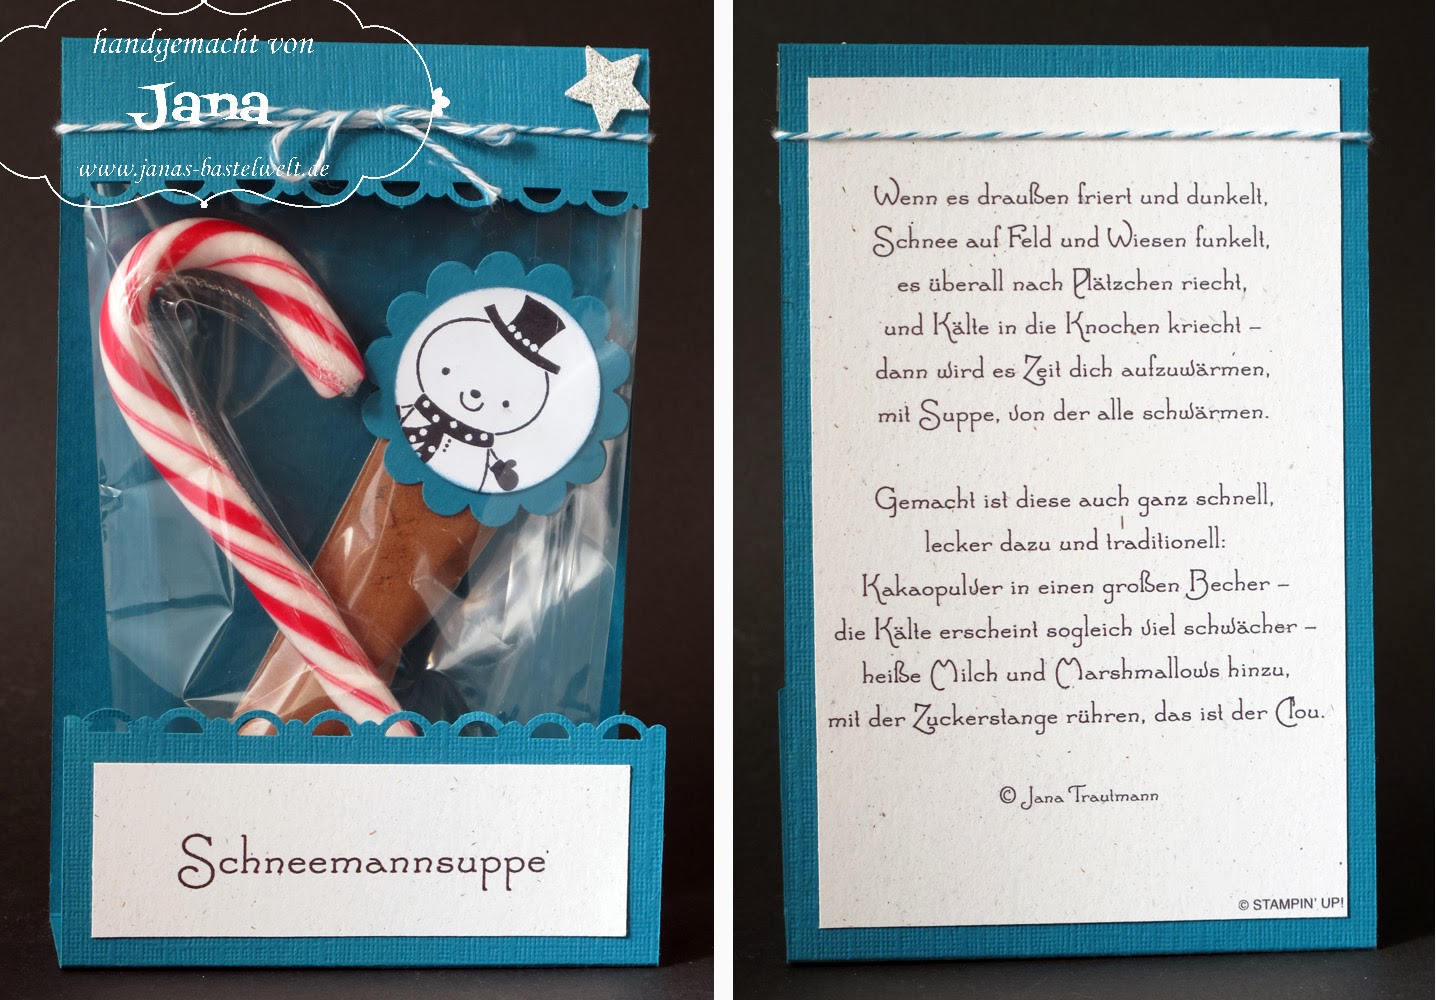 handgemacht von
Jana
www.janas-bastelwelt.de
Schneemannsuppe
Wenn es draußen friert und dunkelt,
Schnee auf Feld und Wiesen funkelt,
es überall nach Plätzchen riecht,
und Kälte in die Knochen kriecht –
dann wird es Zeit dich aufzuwärmen,
mit Suppe, von der alle schwärmen.
Gemacht ist diese auch ganz schnell,
lecker dazu und traditionell:
Kakaopulver in einen großen Becher –
die Kälte erscheint sogleich viel schwächer –
heiße Milch und Marshmallows hinzu,
mit der Zuckerstange rühren, das ist der Clou.
© Jana Trautmann
© STAMPIN' UP!